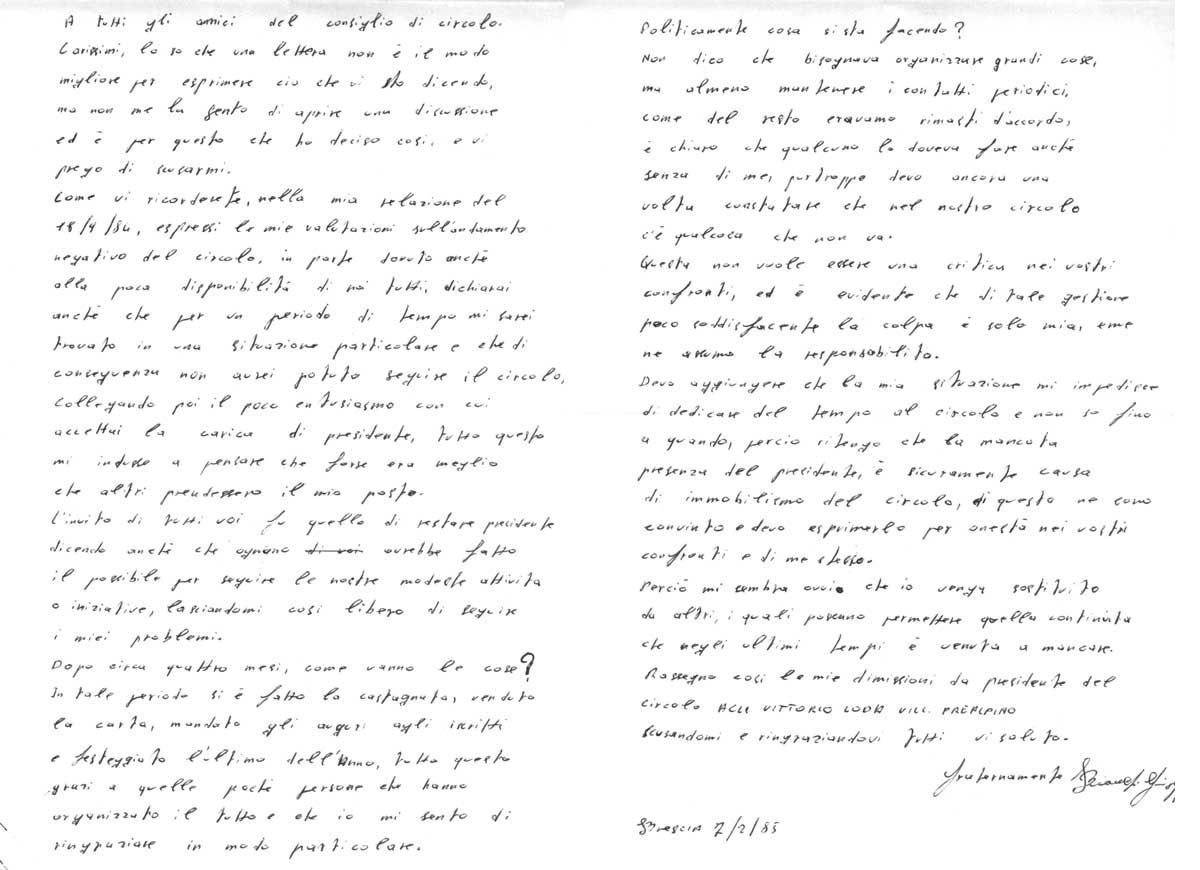 A tutti gli amici del consiglio di circolo.
Carissimi, lo so che una lettera non è il modo
migliore per esprimere ciò che vi sto dicendo,
ma non me la sento di aprire una discussione
ed è per questo che ho deciso così, e vi
prego di scusarmi.
Come vi ricorderete, nella mia relazione del
18/9/84, espressi le mie valutazioni sull'andamento
negativo del circolo, in parte dovuto anche
alla poca disponibilità di noi tutti, dichiarai
anche che per un periodo di tempo mi sarei
trovato in una situazione particolare e che di
conseguenza non avrei potuto seguire il circolo,
collegando poi il poco entusiasmo con cui
accettai la carica di presidente, tutto questo
mi indusse a pensare che forse era meglio
che altri prendessero il mio posto.
L'invito di tutti voi fu quello di restare presidente
dicendo anche che ognuno di voi avrebbe fatto
il possibile per seguire le nostre modeste attività
o iniziative, lasciandomi così libero di seguire
i miei problemi.
Dopo circa quattro mesi, come vanno le cose?
In tale periodo si è fatto la castagnata, venduto
la carta, mandato gli auguri agli iscritti
e festeggiato l'ultimo dell'anno, tutto questo
grazi a quelle poche persone che hanno
organizzato il tutto e che io mi sento di
ringraziare in modo particolare.
Politicamente cosa si sta facendo?
Non dico che bisognava organizzare grandi cose,
ma almeno mantenere i contatti periodici,
come del resto eravamo rimasti d'accordo,
è chiaro che qualcuno lo doveva fare anche
senza di me, purtroppo devo ancora una
volta constatare che nel nostro circolo
c'è qualcosa che non va.
Questa non vuole essere una critica nei vostri
confronti, ed è evidente che di tale gestione
poco soddisfacente la colpa è solo mia, e me
ne assumo la responsabilità.
Devo aggiungere che la mia situazione mi impedisce
di dedicare del tempo al circolo e non so fino
a quando, perciò ritengo che la mancata
presenza del presidente, è sicuramente causa
di immobilismo del circolo, di questo ne sono
convinto e devo esprimerlo per onestà nei vostri
confronti e di me stesso.
Perciò mi sembra ovvio che io venga sostituito
da altri, i quali possano permettere quella continuità
che negli ultimi tempi è venuta a mancare.
Rassegno così le mie dimissioni da presidente del
circolo ACLI VITTORIO LODA VILL. PREALPINO
scusandomi e ringraziandovi tutti vi saluto.
fraternamente
Brescia 7/2/85